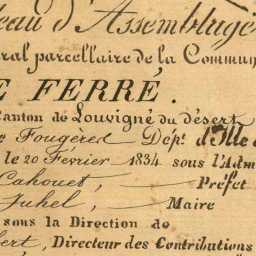 eau d'Assemblage
ral parcellaire de la Commun
E FERRÉ.
Canton de Louvigné du désert
e Fougères Dépt d'Ille
le 20 Février 1834 sous l'Adm
Cahouet, Préfet
Juhel, Maire
sous la Direction de
bert, Directeur des Contributions